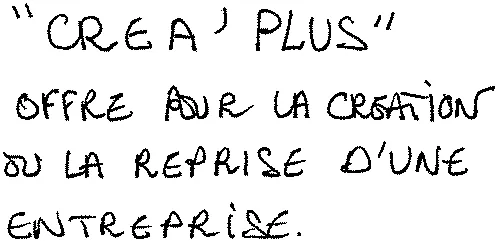 "CREA'PLUS"
OFFRE POUR LA CREATION
OU LA REPRISE D'UNE
ENTREPRISE.